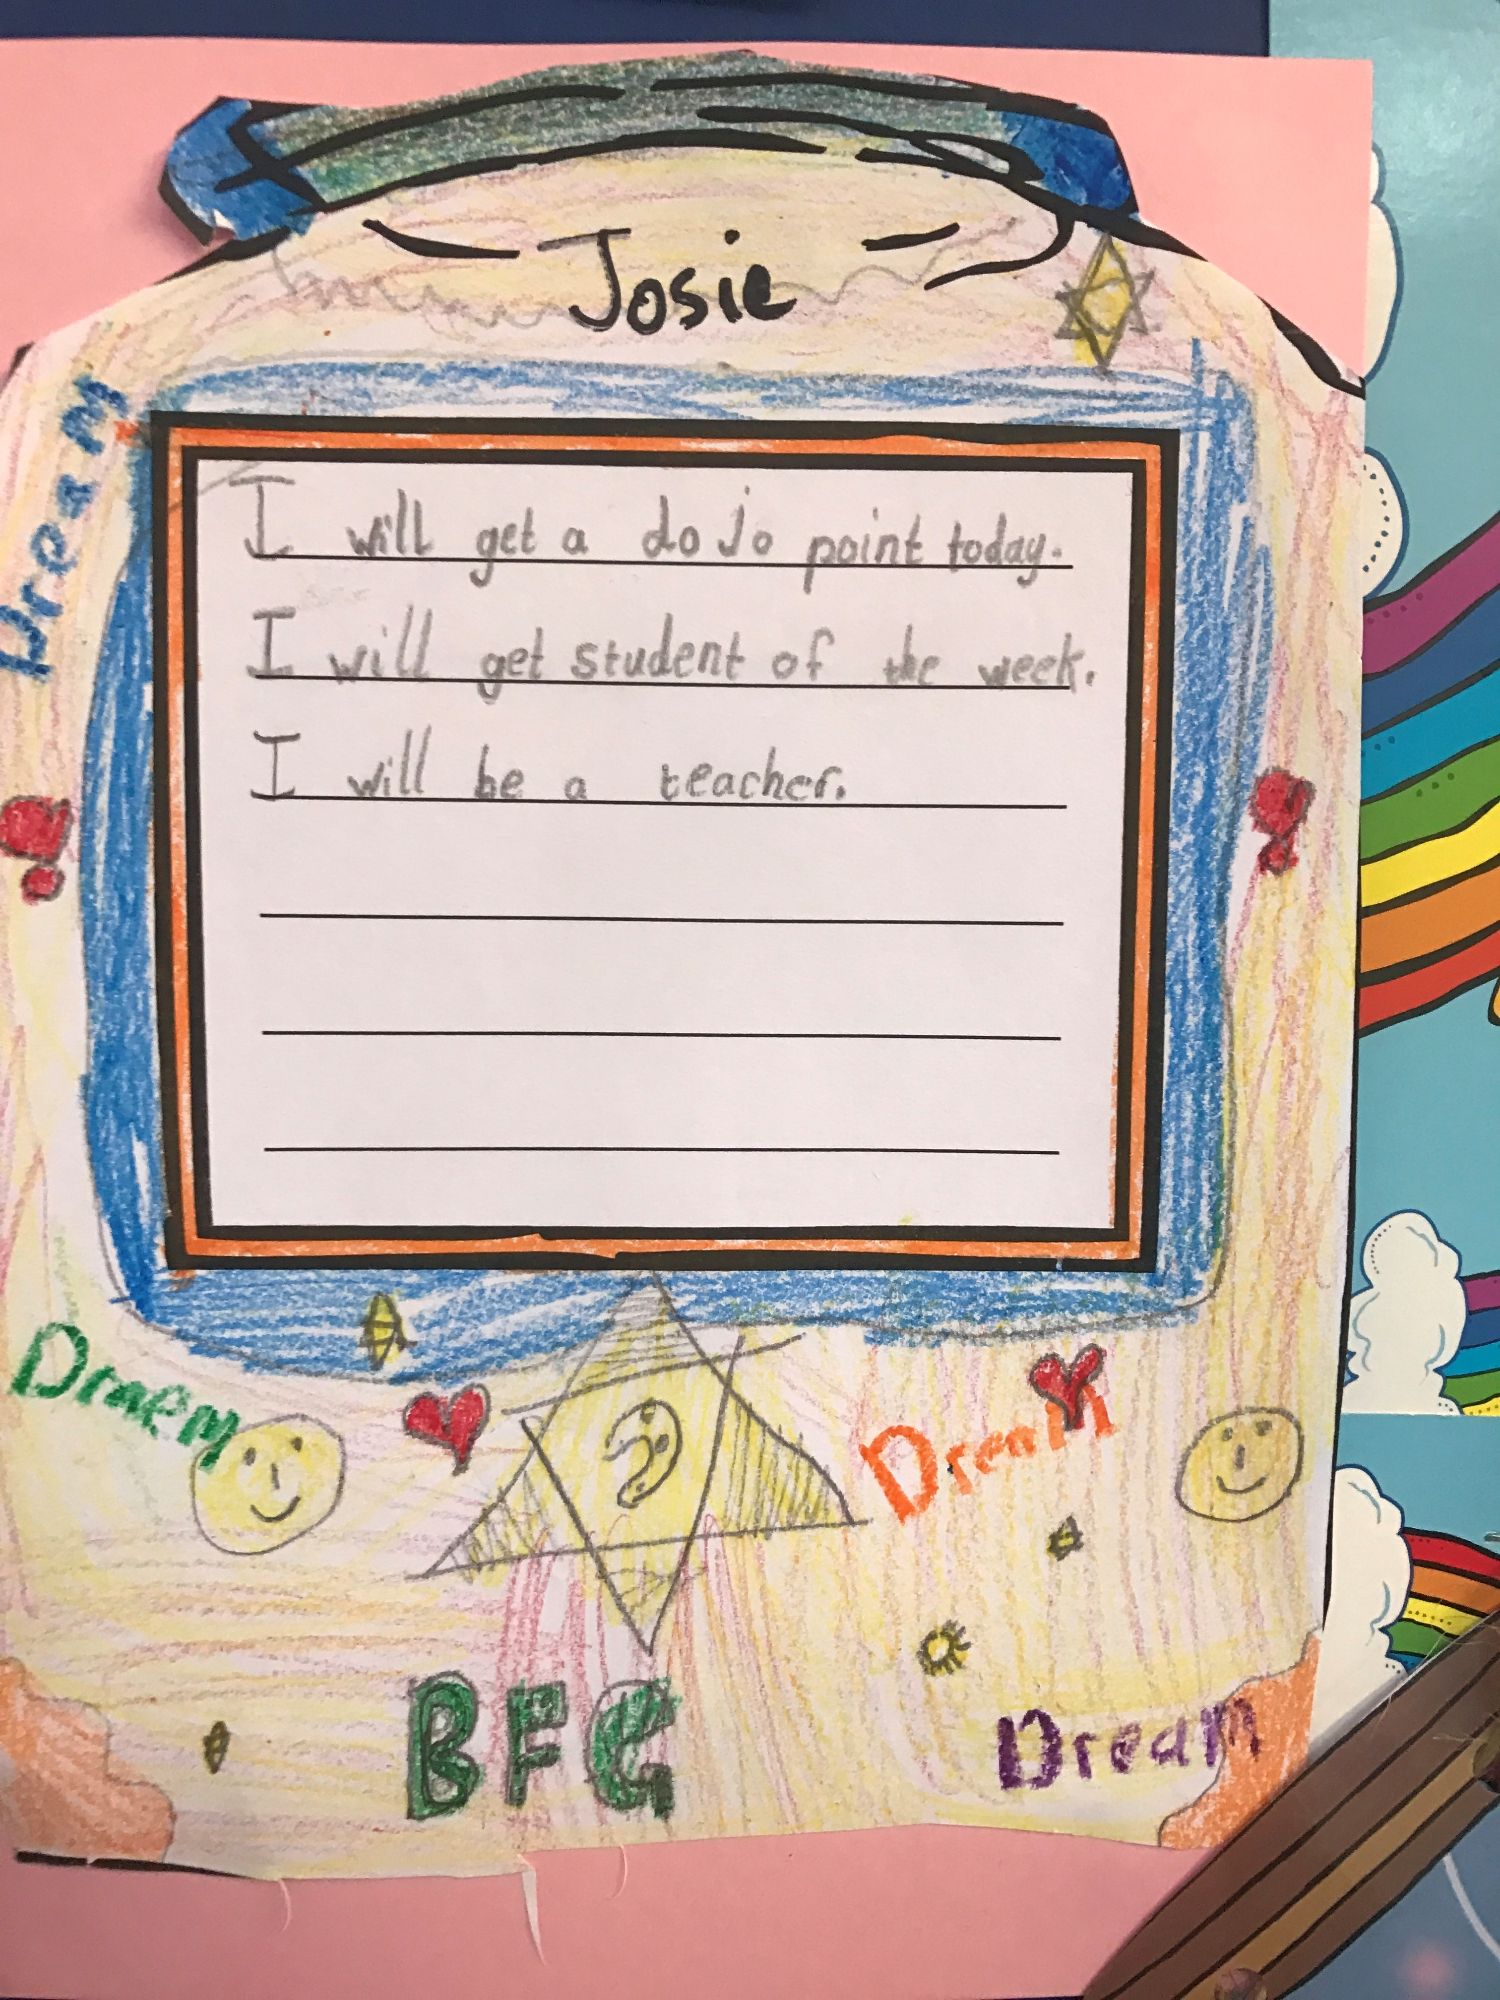 Josie
Dream
I will get a dojo point today.
I will get student of the week.
I will be a teacher.
Draem
Dream
BFG
Dream